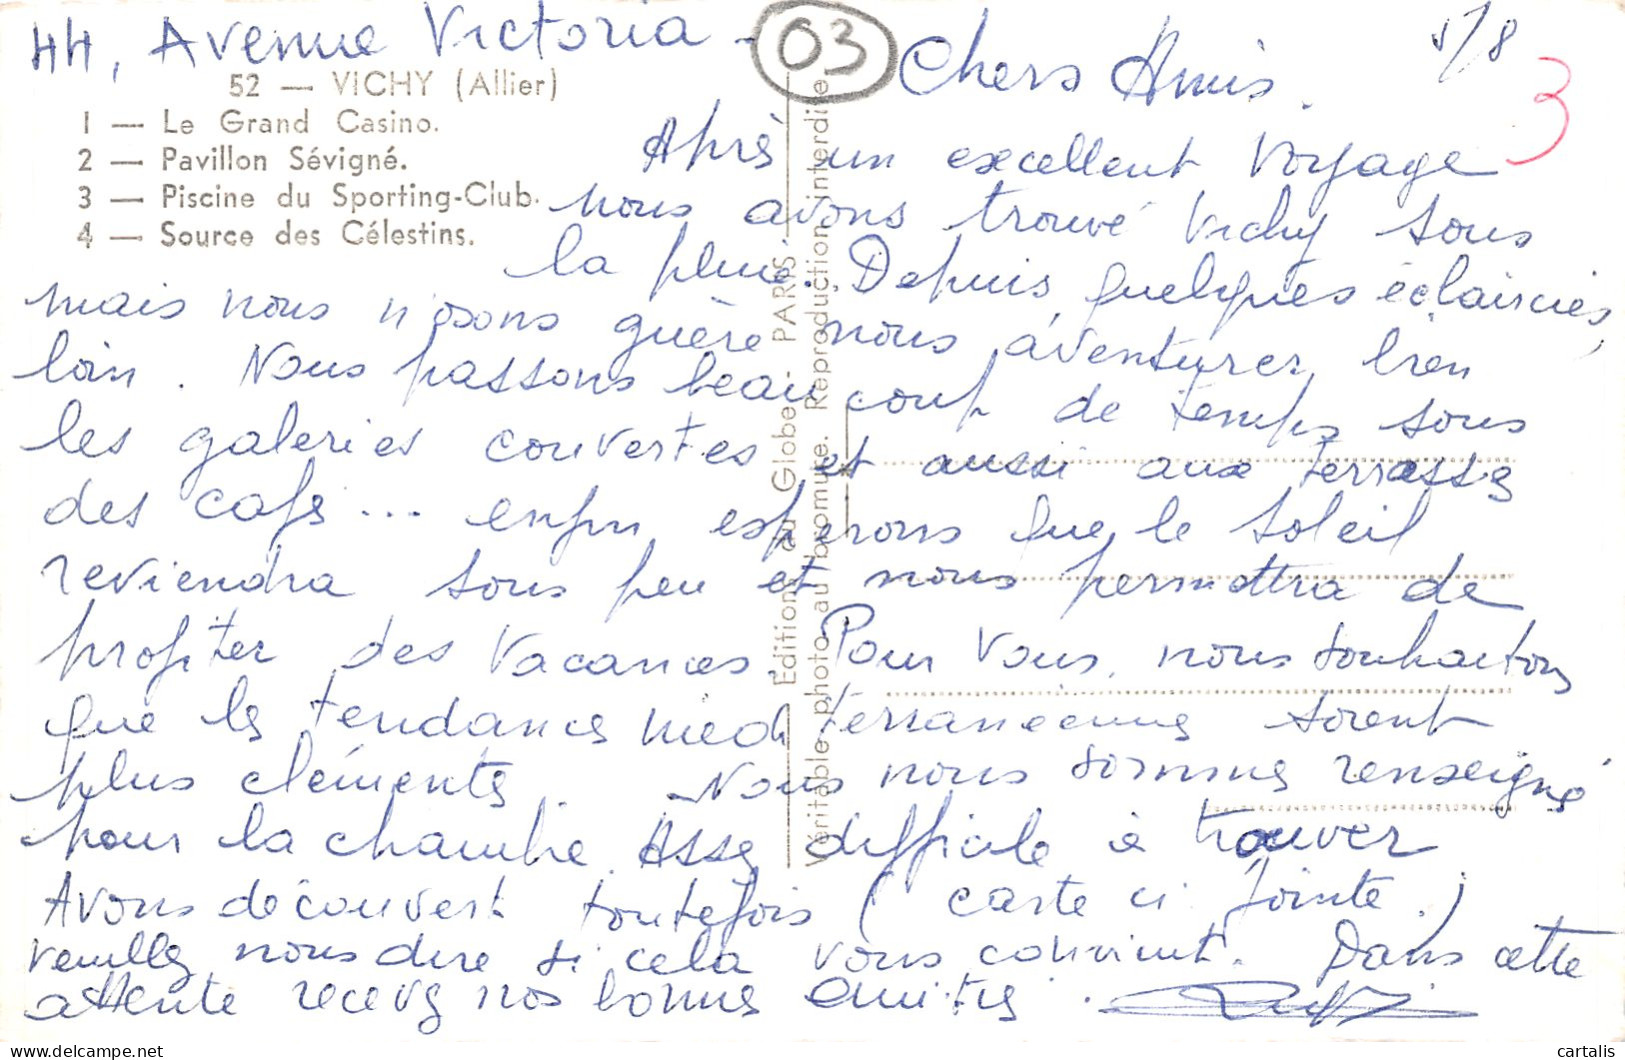 44, Avenue Victoria -
03
Chers Amis.
5/8
3
52 — VICHY (Allier)
1 — Le Grand Casino.
2 — Pavillon Sévigné.
3 — Piscine du Sporting-Club.
4 — Source des Célestins.
Editions du Globe - PARIS.
Véritable photo au bromure. Reproduction interdite
Après un excellent voyage
nous avons trouvé Vichy sous
la pluie. Depuis, quelques éclaircies,
mais nous n'osons guère nous aventurer bien
loin. Nous passons beaucoup de temps sous
les galeries couvertes et aussi aux terrasses
des cafés ... enfin espérons que le soleil
reviendra sous peu et nous permettra de
profiter des vacances. Pour vous, nous souhaitons
que les tendances méditerranéennes soient
plus clémentes. Nous nous sommes renseigné
pour la chambre. Assez difficile à trouver
Avons découvert toutefois (carte ci jointe.)
veuillez nous dire si cela vous convient. Dans cette
attente recevez nos bonnes amitiés.
cartalis